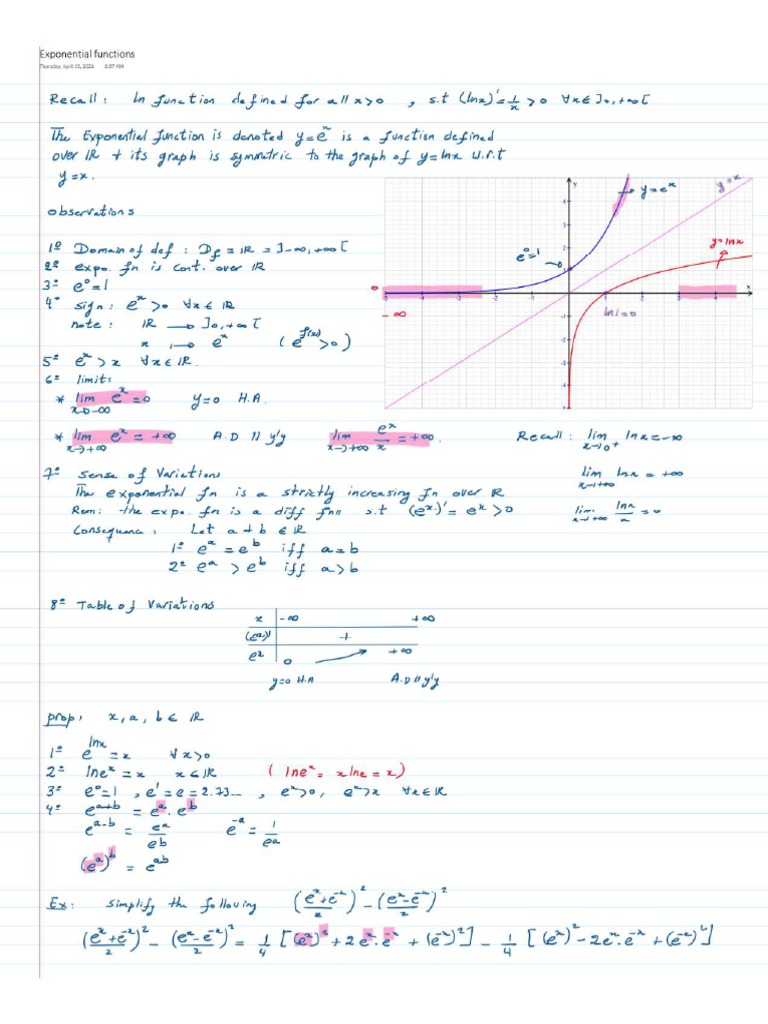 Exponential functions
Thursday, April 15, 2026 6:07 AM
Recall: ln function defined for all x>0 , s.t (lnx)' = 1/x > 0 ∀x∈]0,+∞[
The Exponential function is denoted y=e^x is a function defined
over IR + its graph is symmetric to the graph of y=lnx w.r.t
y=x.
observations
1° Domain of def : D_f = IR = ]-∞,+∞[
2° expo. fn is cont. over IR
3° e°=1
4° sign: e^x >0 ∀x∈IR
note: IR → ]0,+∞[
x ↦ e^x (e^f(x) >0)
5° e^x > x ∀x∈IR.
6° limits
* lim e^x = 0 y=0 H.A.
x→-∞
* lim e^x = +∞ A.D // y'y lim e^x/x = +∞.
x→+∞ x→+∞
y
x
y=e^x
y=x
e°=1
y=lnx
0
-∞
ln1=0
-5 -4 -3 -2 -1 1 2 3 4
4
3
2
1
-1
-2
-3
-4
Recall: lim lnx = -∞
x→0+
lim lnx = +∞
x→+∞
lim lnx/x = 0
x→+∞
7° Sense of Variations
The exponential fn is a strictly increasing fn over IR
Rem: the expo. fn is a diff fnn s.t (e^x)' = e^x >0
Consequence: Let a + b ∈ IR
1° e^a = e^b iff a=b
2° e^a > e^b iff a>b
8° Table of Variations
x -∞ +∞
(e^x)' +
e^x 0 +∞
y=0 H.A A.D // y'y
prop: x, a, b ∈ IR
1° e^lnx = x ∀x>0
2° lne^x = x x∈IR (lne^x = xlne = x)
3° e°=1 , e' = e = 2.73... , e^x>0, e^x>x ∀x∈IR
4° e^a+b = e^a . e^b
e^a-b = e^a/e^b e^-a = 1/e^a
(e^a)^b = e^ab
Ex: simplify the following ((e^x+e^-x)/2)² - ((e^x-e^-x)/2)²
((e^x+e^-x)/2)² - ((e^x-e^-x)/2)² = 1/4 [(e^x)² + 2e^x.e^-x + (e^-x)²] - 1/4 [(e^x)² - 2e^x.e^-x + (e^-x)²]